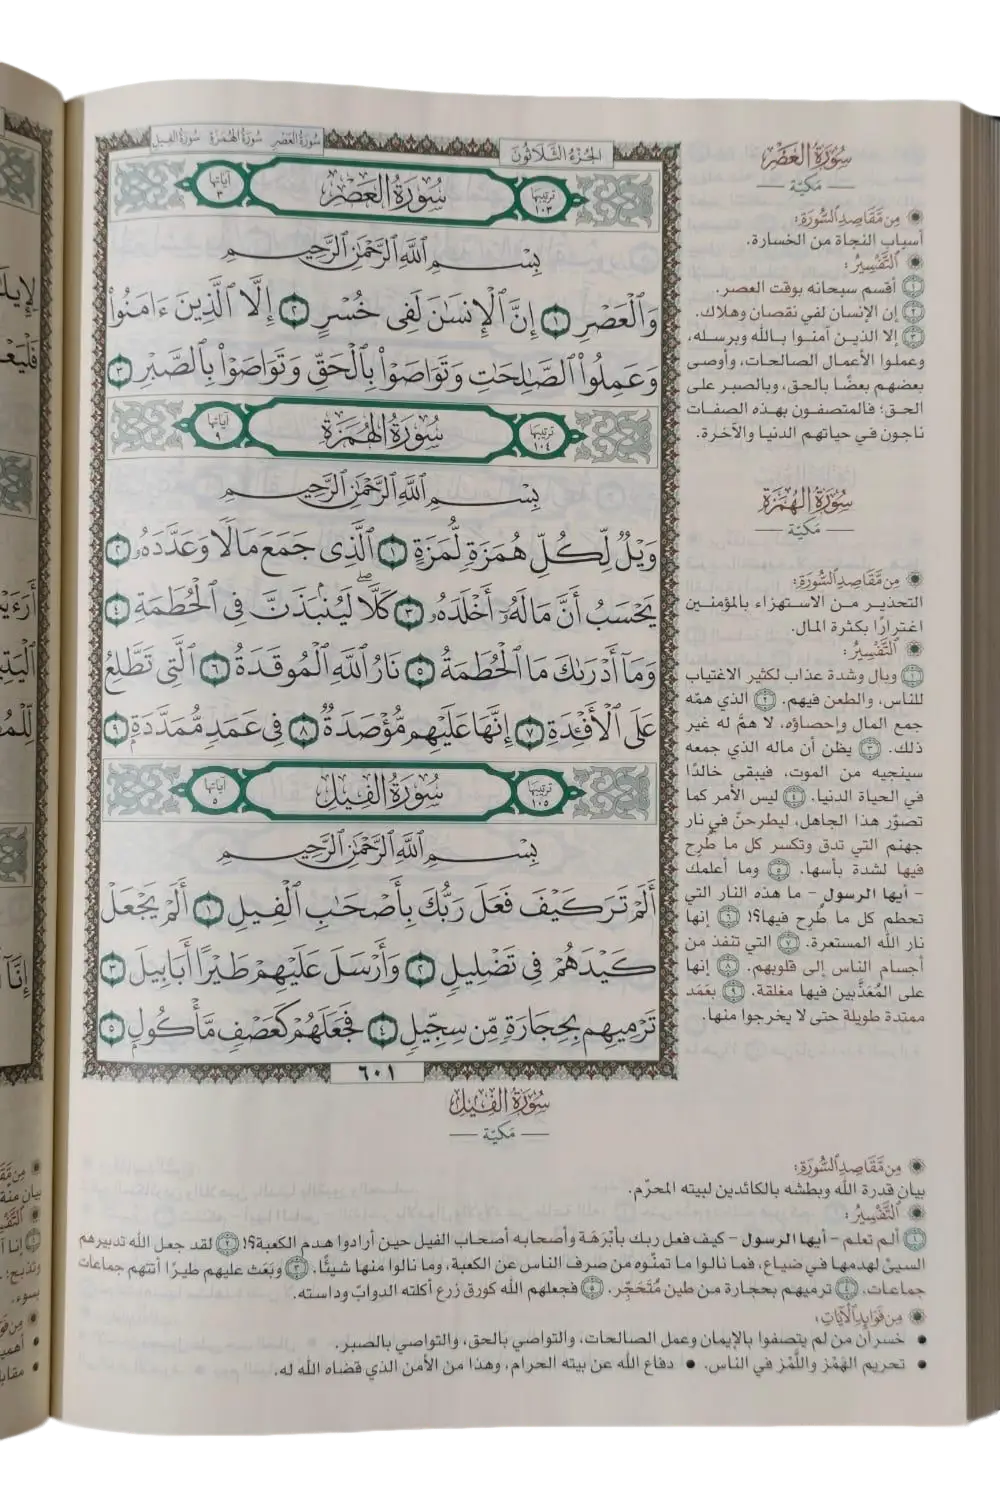 الجزء الثلاثون
سورة العصر سورة الهمزة سورة الفيل
ترتيبها ١٠٣ سُورَةُ العَصْرِ آياتها ٣
بِسْمِ اللَّهِ الرَّحْمَٰنِ الرَّحِيمِ
وَالْعَصْرِ ١ إِنَّ الْإِنسَٰنَ لَفِى خُسْرٍ ٢ إِلَّا الَّذِينَ ءَامَنُوا۟
وَعَمِلُوا۟ الصَّٰلِحَٰتِ وَتَوَاصَوْا۟ بِالْحَقِّ وَتَوَاصَوْا۟ بِالصَّبْرِ ٣
ترتيبها ١٠٤ سُورَةُ الهُمَزَةِ آياتها ٩
بِسْمِ اللَّهِ الرَّحْمَٰنِ الرَّحِيمِ
وَيْلٌ لِّكُلِّ هُمَزَةٍ لُّمَزَةٍ ١ الَّذِى جَمَعَ مَالًا وَعَدَّدَهُۥ ٢
يَحْسَبُ أَنَّ مَالَهُۥٓ أَخْلَدَهُۥ ٣ كَلَّا ۖ لَيُنۢبَذَنَّ فِى الْحُطَمَةِ ٤
وَمَآ أَدْرَىٰكَ مَا الْحُطَمَةُ ٥ نَارُ اللَّهِ الْمُوقَدَةُ ٦ الَّتِى تَطَّلِعُ
عَلَى الْأَفْـِٔدَةِ ٧ إِنَّهَا عَلَيْهِم مُّؤْصَدَةٌ ٨ فِى عَمَدٍ مُّمَدَّدَةٍۭ ٩
ترتيبها ١٠٥ سُورَةُ الفِيلِ آياتها ٥
بِسْمِ اللَّهِ الرَّحْمَٰنِ الرَّحِيمِ
أَلَمْ تَرَ كَيْفَ فَعَلَ رَبُّكَ بِأَصْحَٰبِ الْفِيلِ ١ أَلَمْ يَجْعَلْ
كَيْدَهُمْ فِى تَضْلِيلٍ ٢ وَأَرْسَلَ عَلَيْهِمْ طَيْرًا أَبَابِيلَ ٣
تَرْمِيهِم بِحِجَارَةٍ مِّن سِجِّيلٍ ٤ فَجَعَلَهُمْ كَعَصْفٍ مَّأْكُولٍۭ ٥
٦٠١
سُورَةُ العَصْرِ
مَكيّة
مِن مَّقَاصِدِ السُّورَةِ:
أسباب النجاة من الخسارة.
التَّفْسِيرُ:
١ أقسم سبحانه بوقت العصر.
٢ إن الإنسان لفي نقصان وهلاك.
٣ إلا الذين آمنوا بالله وبرسله،
وعملوا الأعمال الصالحات، وأوصى
بعضهم بعضًا بالحق، وبالصبر على
الحق؛ فالمتصفون بهذه الصفات
ناجون في حياتهم الدنيا والآخرة.
سُورَةُ الهُمَزَةِ
مَكيّة
مِن مَّقَاصِدِ السُّورَةِ:
التحذير من الاستهزاء بالمؤمنين
اغترارًا بكثرة المال.
التَّفْسِيرُ:
١ وبال وشدة عذاب لكثير الاغتياب
للناس، والطعن فيهم. ٢ الذي همّه
جمع المال وإحصاؤه، لا همَّ له غير
ذلك. ٣ يظن أن ماله الذي جمعه
سينجيه من الموت، فيبقى خالدًا
في الحياة الدنيا. ٤ ليس الأمر كما
تصوّر هذا الجاهل، ليطرحنّ في نار
جهنم التي تدق وتكسر كل ما طُرِح
فيها لشدة بأسها. ٥ وما أعلمك
- أيها الرسول - ما هذه النار التي
تحطم كل ما طُرح فيها؟! ٦ إنها
نار الله المستعرة. ٧ التي تنفذ من
أجسام الناس إلى قلوبهم. ٨ إنها
على المُعَذَّبين فيها مغلقة. ٩ بعَمَد
ممتدة طويلة حتى لا يخرجوا منها.
سُورَةُ الفِيلِ
مَكيّة
مِن مَّقَاصِدِ السُّورَةِ:
بيان قدرة الله وبطشه بالكائدين لبيته المحرّم.
التَّفْسِيرُ:
١ ألم تعلم - أيها الرسول - كيف فعل ربك بأبْرَهَة وأصحابه أصحاب الفيل حين أرادوا هدم الكعبة؟! ٢ لقد جعل الله تدبيرهم
السيئ لهدمها في ضياع، فما نالوا ما تمنّوه من صرف الناس عن الكعبة، وما نالوا منها شيئًا. ٣ وبَعَث عليهم طيرًا أتتهم جماعات
جماعات. ٤ ترميهم بحجارة من طين مُتَحَجِّر. ٥ فجعلهم الله كورق زرع أكلته الدوابّ وداسته.
مِن فَوَائِدِ الْآيَاتِ:
• خسران من لم يتصفوا بالإيمان وعمل الصالحات، والتواصي بالحق، والتواصي بالصبر.
• تحريم الهَمْز واللَّمْز في الناس. • دفاع الله عن بيته الحرام، وهذا من الأمن الذي قضاه الله له.